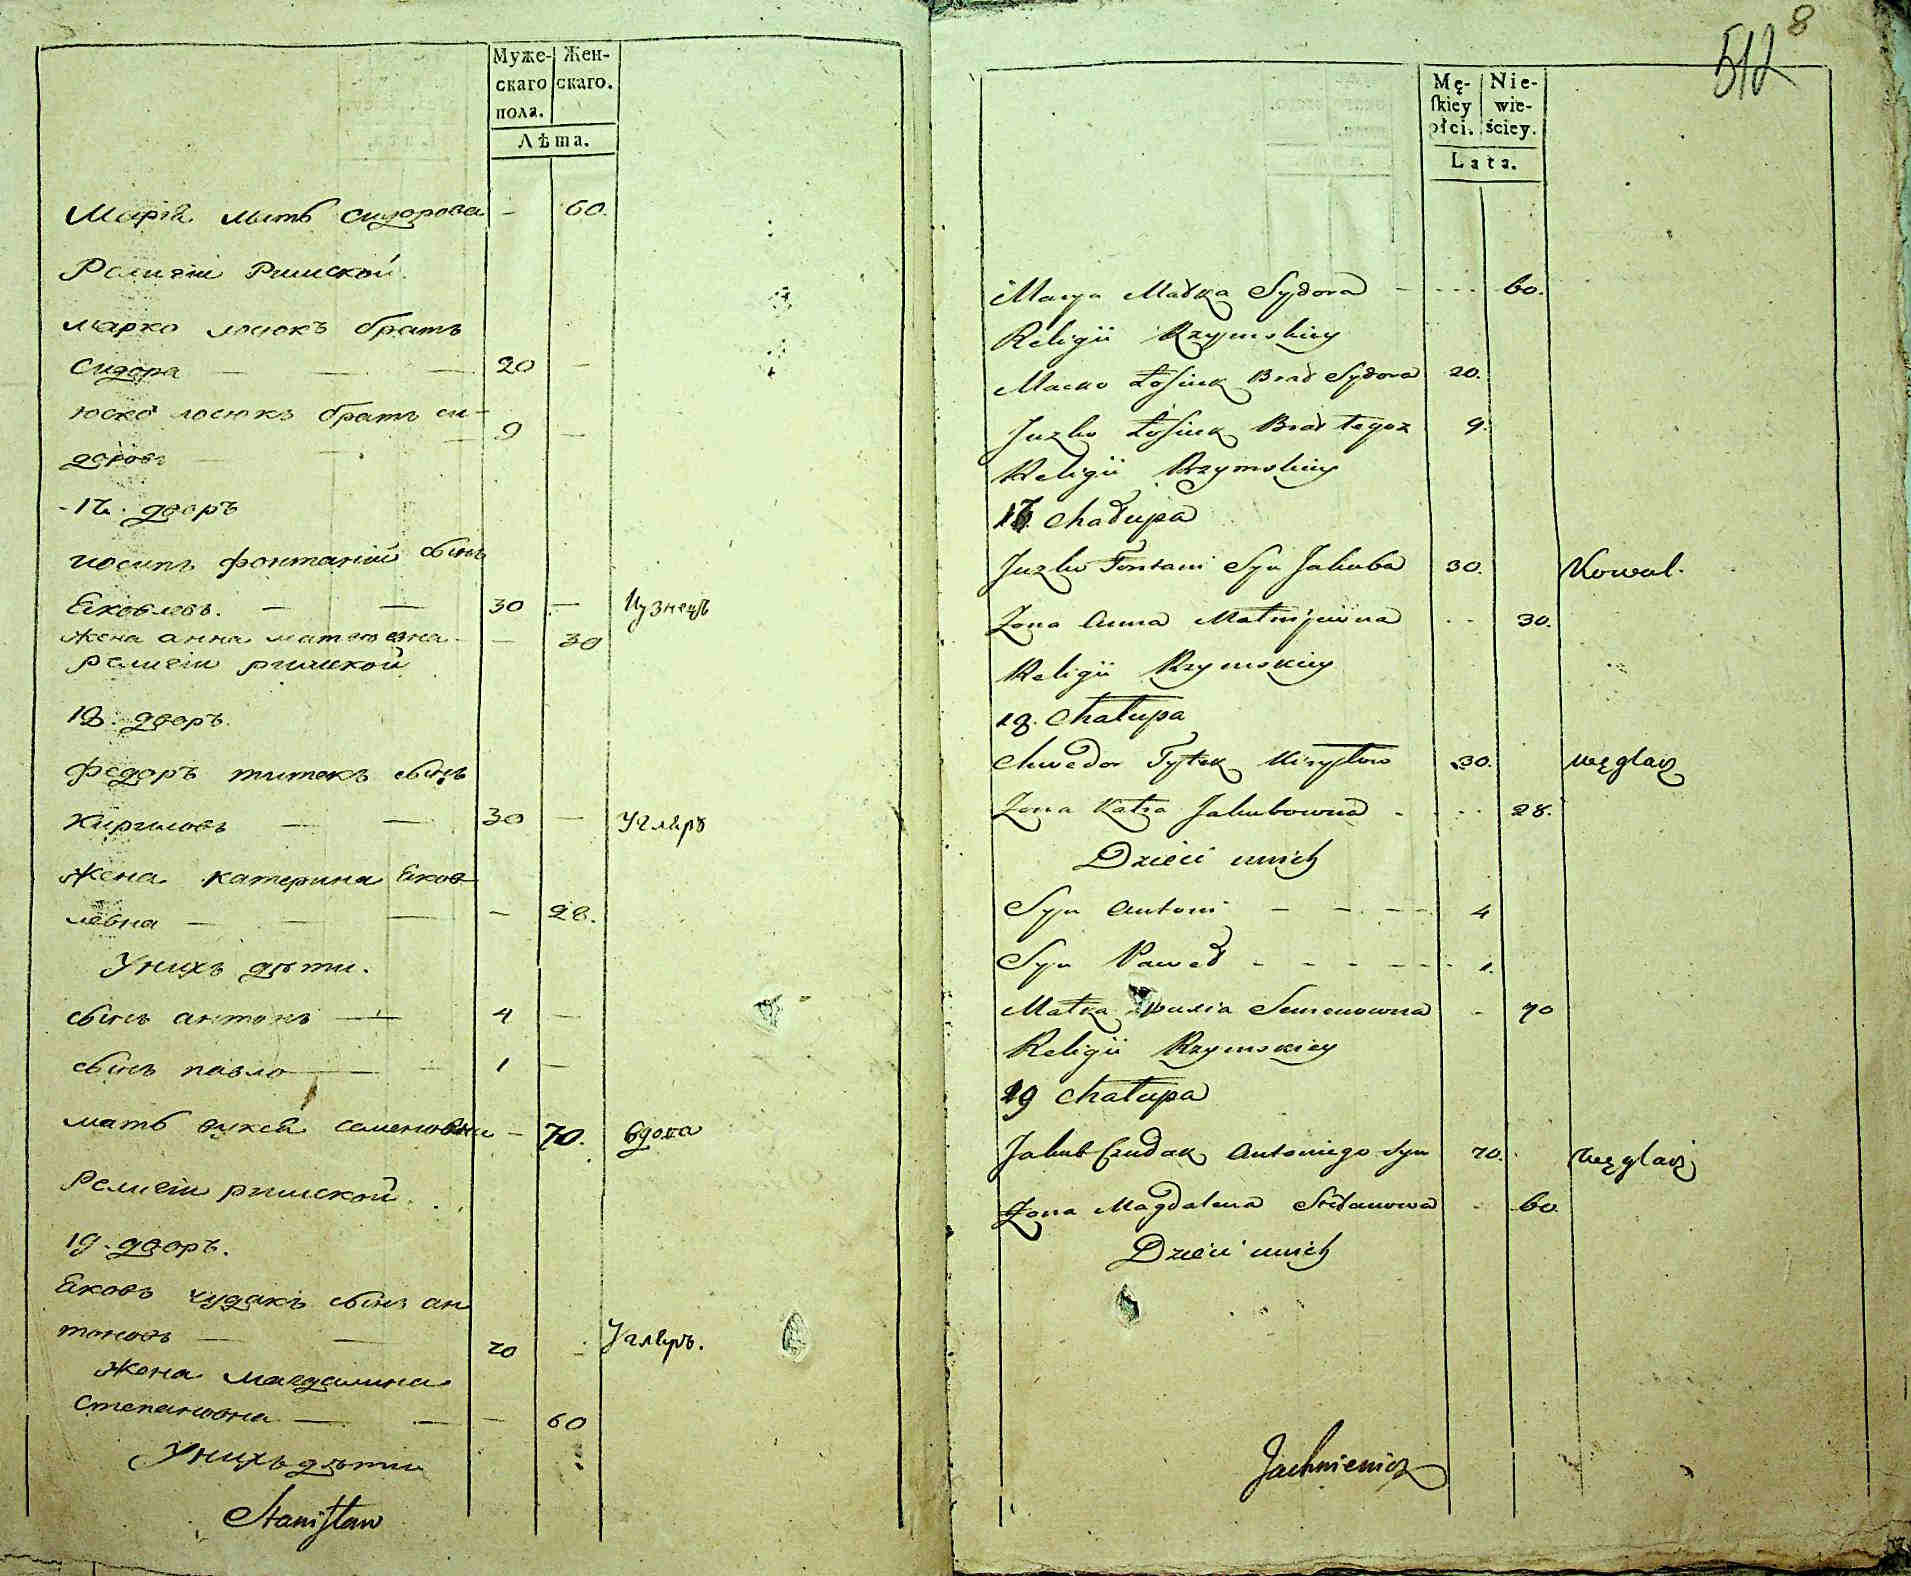 Муже- Жен-
скаго скаго.
пола.
Лѣта.
Марія мать Сидорова - 60.
Религіи Римской.
марко лосюкъ братъ
Сидора — — — 20 —
юско лосюкъ братъ си-
доровъ — — 9 —
17. дворъ
иосипъ фонтаній сынъ
Яковлевъ. — — 30 — Кузнецъ
жена анна матеювна — — 30
религіи римской
18. дворъ.
федоръ титокъ сынъ
кириловъ — — 30 — Угляръ
жена катерина Яков
левна — — — — 28.
У нихъ дѣти.
сынъ антонъ — 4 —
сынъ павло — — 1 —
мать семеновна — 70. вдова
Религіи римской.
19. дворъ.
Яковъ чудакъ сынъ ан
тоновъ — — 70 - Угляръ.
жена магдалина
Степановна — — — 60
У нихъ дѣти
Stanisław
8
512
Mę- Nie-
skiey wie-
płci. ściey.
Lata.
Marya Matka Sydora - - - - 60.
Religii Rzymskiey
Marko Łosiuk Brat Sydora 20.
Juzko Łosiuk Brat tegoz 9.
Religii Rzymskiey
17. Chałupa
Juzko Fontani Syn Jakuba 30. Kowal.
Zona Anna Mateyiowna - - 30.
Religii Rzymskiey
18. Chałupa
Chwedor Tytek Kiryłow 30. węglarz
Zona Katra Jakubowna - - - - 28.
Dzieci unich
Syn Antoni - - - - 4
Syn Paweł - - - - - - 1.
Matka Semenowna - 70
Religii Rzymskiey
19 Chałupa
Jakub Czudak Antoniego Syn 70. węglarz
Zona Magdalena Stefanowa - 60
Dzieci unich
Jachniewicz